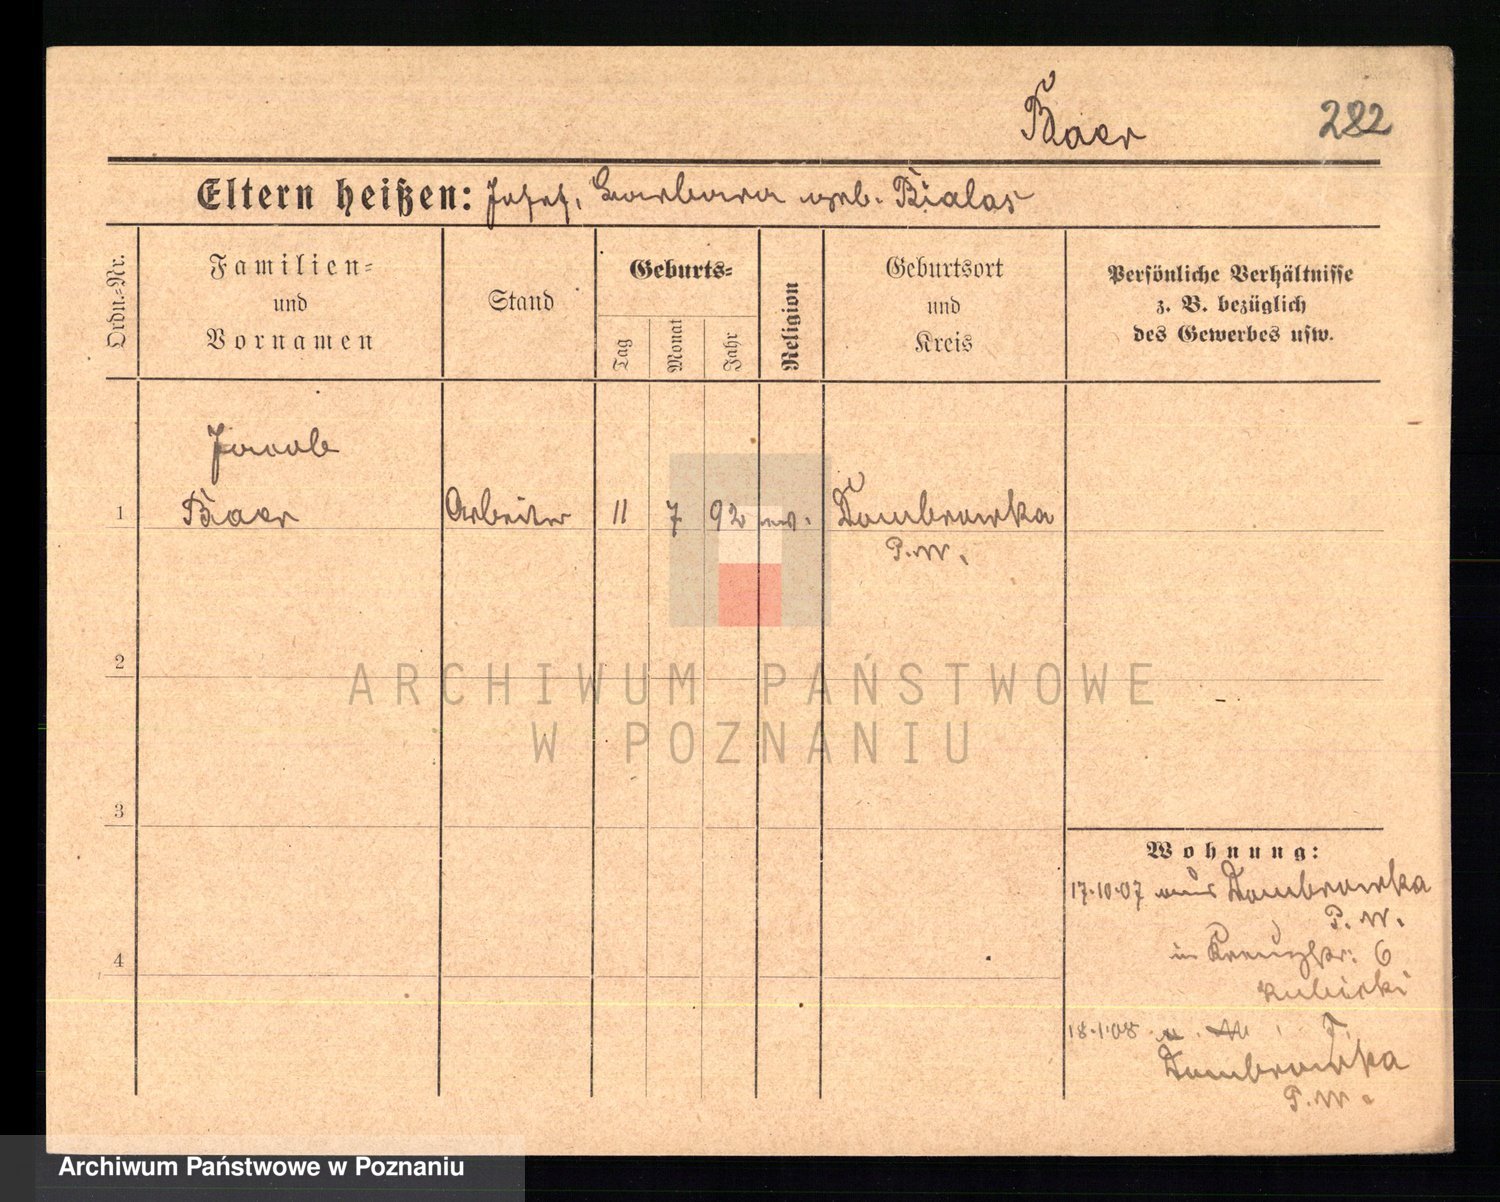 Baer
282
Eltern heißen: Josef, Barbara geb. Bialas
Ordn.-Nr.
Familien-
und
Vornamen
Stand
Geburts-
Tag
Monat
Jahr
Religion
Geburtsort
und
Kreis
Persönliche Verhältnisse
z. B. bezüglich
des Gewerbes usw.
Jacob
1 Baer Arbeiter 11 7 92 Dombrowka
P. W.
2
3
4
Wohnung:
17.10.07 aus Dombrowka
P. W.
in Kreuzstr. 6
18.1.08
Dombrowka
P. W.
ARCHIWUM PAŃSTWOWE
W POZNANIU
Archiwum Państwowe w Poznaniu